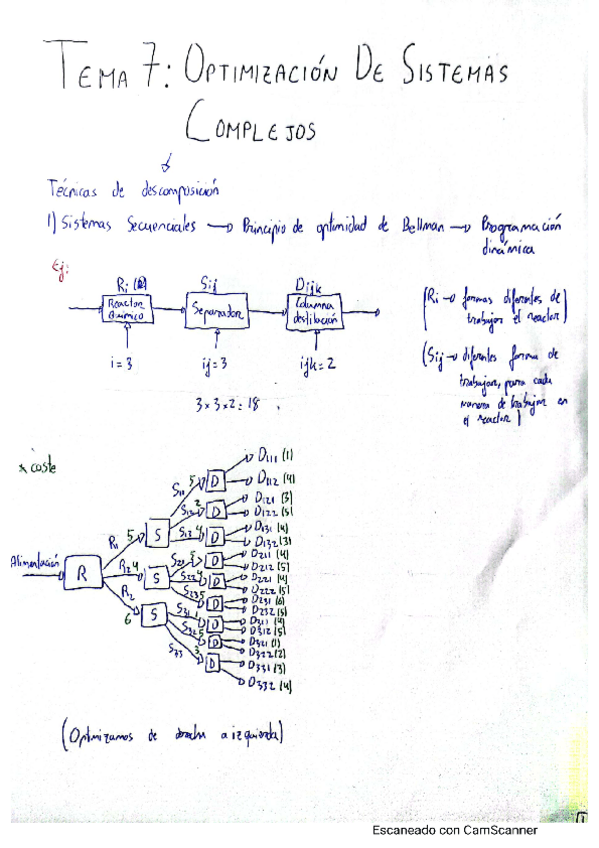 TEMA 7: OPTIMIZACIÓN DE SISTEMAS
COMPLEJOS
Técnicas de descomposición
1) Sistemas Secuenciales → Principio de optimidad de Bellman → Programación
dinámica
Ej:
Ri
Sij
Dijk
Reactor
Químico
Separador
Columna
destilación
i = 3
ij = 3
ijk = 2
3 x 3 x 2 = 18
(Ri → formas diferentes de
trabajar el reactor)
(Sij → diferentes forma de
trabajar, para cada
manera de trabajar en
el reactor)
* coste
Alimentación
R
R1 5
R2 4
R2 6
S
S
S
S11 5
S12 2
S13 4
S21
S22 4
S23 5
S31 1
S32 5
S33 3
D
D
D
D
D
D
D
D
D
D111 (1)
D112 (4)
D121 (3)
D122 (5)
D131 (4)
D132 (3)
D211 (4)
D212 (5)
D221 (4)
D222 (5)
D231 (6)
D232 (5)
D311 (4)
D312 (5)
D321 (1)
D322 (2)
D331 (3)
D332 (4)
(Optimizamos de derecha a izquierda)
Escaneado con CamScanner